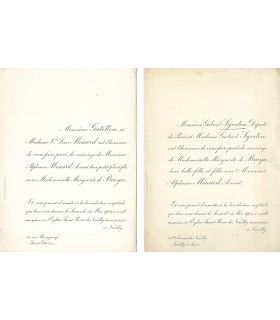 Monsieur Galillon et
Madame Vve Léon Menard ont l'honneur
de vous faire part du mariage de Monsieur
Alphonse Menard, leur petit-fils et fils
avec Mademoiselle Marguerite de Bruyn
Et vous prient d'assister à la bénédiction nuptiale
qui leur sera donnée le Samedi 14 Mai
en l'Eglise Saint Pierre de Neuilly
à Neuilly
Saint-Etienne
Monsieur Gabriel Syveton, Député
de Paris et Madame Gabriel Syveton
ont l'honneur de vous faire part du mariage
de Mademoiselle Marguerite de Bruyn
leur belle-fille et fille avec Monsieur
Alphonse Menard, Avocat
Et vous prient d'assister à la bénédiction nuptiale
qui leur sera donnée le Samedi 14 Mai
en l'Eglise Saint Pierre de Neuilly
à Neuilly
de Neuilly
Neuilly s/ Seine